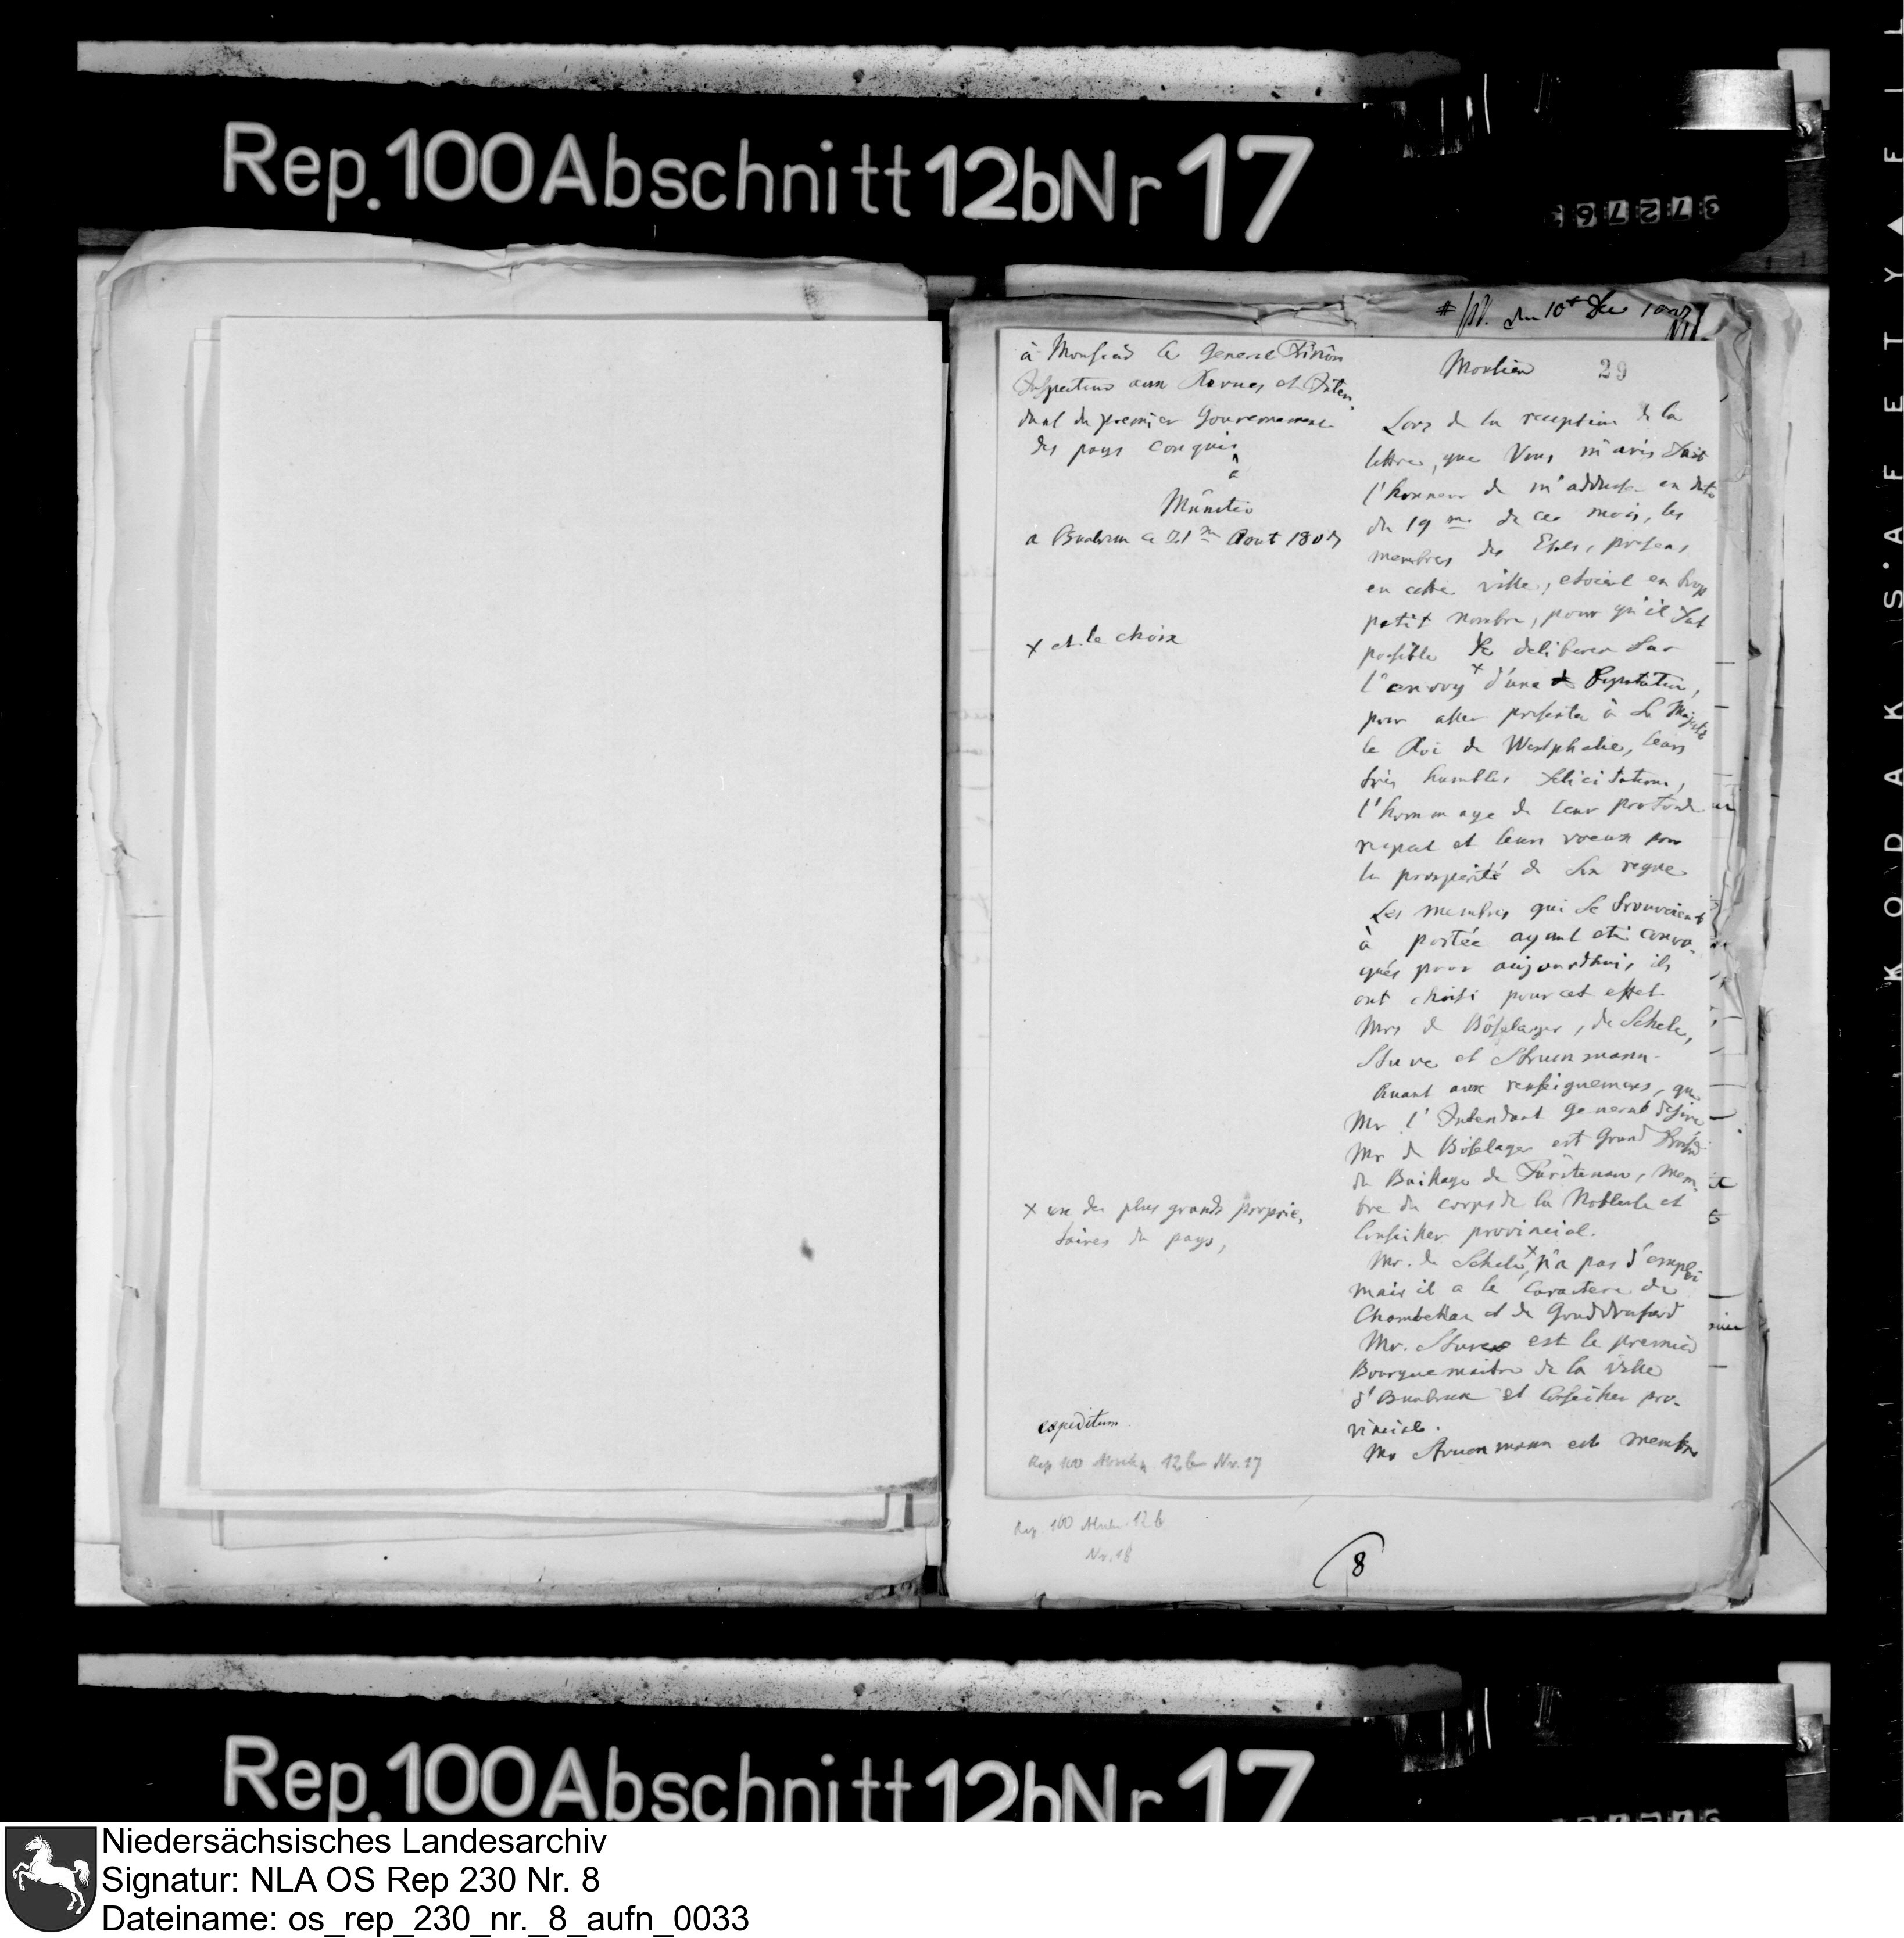 Rep.100Abschnitt12bNr 17
du 10t Dec
à Monsieur le General
Inspecteur aux Revues et Inten-
dant du premier Gouvernement
des pays conquis
à
Münster
a Osnabruck ce 21me Aout 1807
x et le choix
x un des plus grands proprie-
taires du pays,
expeditum
Rep 100 Abschn. 12b Nr. 17
Rep. 100 Abschn. 12b
Nr. 18
Monsieur 29
Lors de la reception de la
lettre, que Vous m'avés fait
l'honneur de m'addresser en date
du 19me de ce mois, les
membres des Etats, presens
en cette ville, etoient en trop
petit nombre, pour qu'il fut
possible de deliberer sur
l'envoy x d'une Deputation,
pour aller presenter à Sa Majesté
le Roi de Westphalie, leurs
très humbles felicitations,
l'hommage de leur profond
respect et leurs voeux pour
la prosperité de son regne
Les membres qui se trouvoient
à portée ayant été convo-
qués pour aujourdhui, ils
ont choisi pour cet effet
Mrs de Böselager, de Schele,
Stuve et Struckmann.
Quant aux renseignemens, que
Mr l'Intendant General desire
Mr de Böselager est Grand
du Bailliage de Fürstenau, mem-
bre du corps de la Noblesse et
Conseiller provincial.
Mr. de Schele x n'a pas d'emploi
mais il a le caractere de
Chambellan et de Grand drossard
Mr. Stuve est le premier
Bourguemaitre de la ville
d'Osnabruck et Conseiller pro-
vincial.
Mr Struckmann est membre
8
Rep.100Abschnitt12bNr 17
KODAK SAFETY FIL
Niedersächsisches Landesarchiv
Signatur: NLA OS Rep 230 Nr. 8
Dateiname: os_rep_230_nr._8_aufn_0033